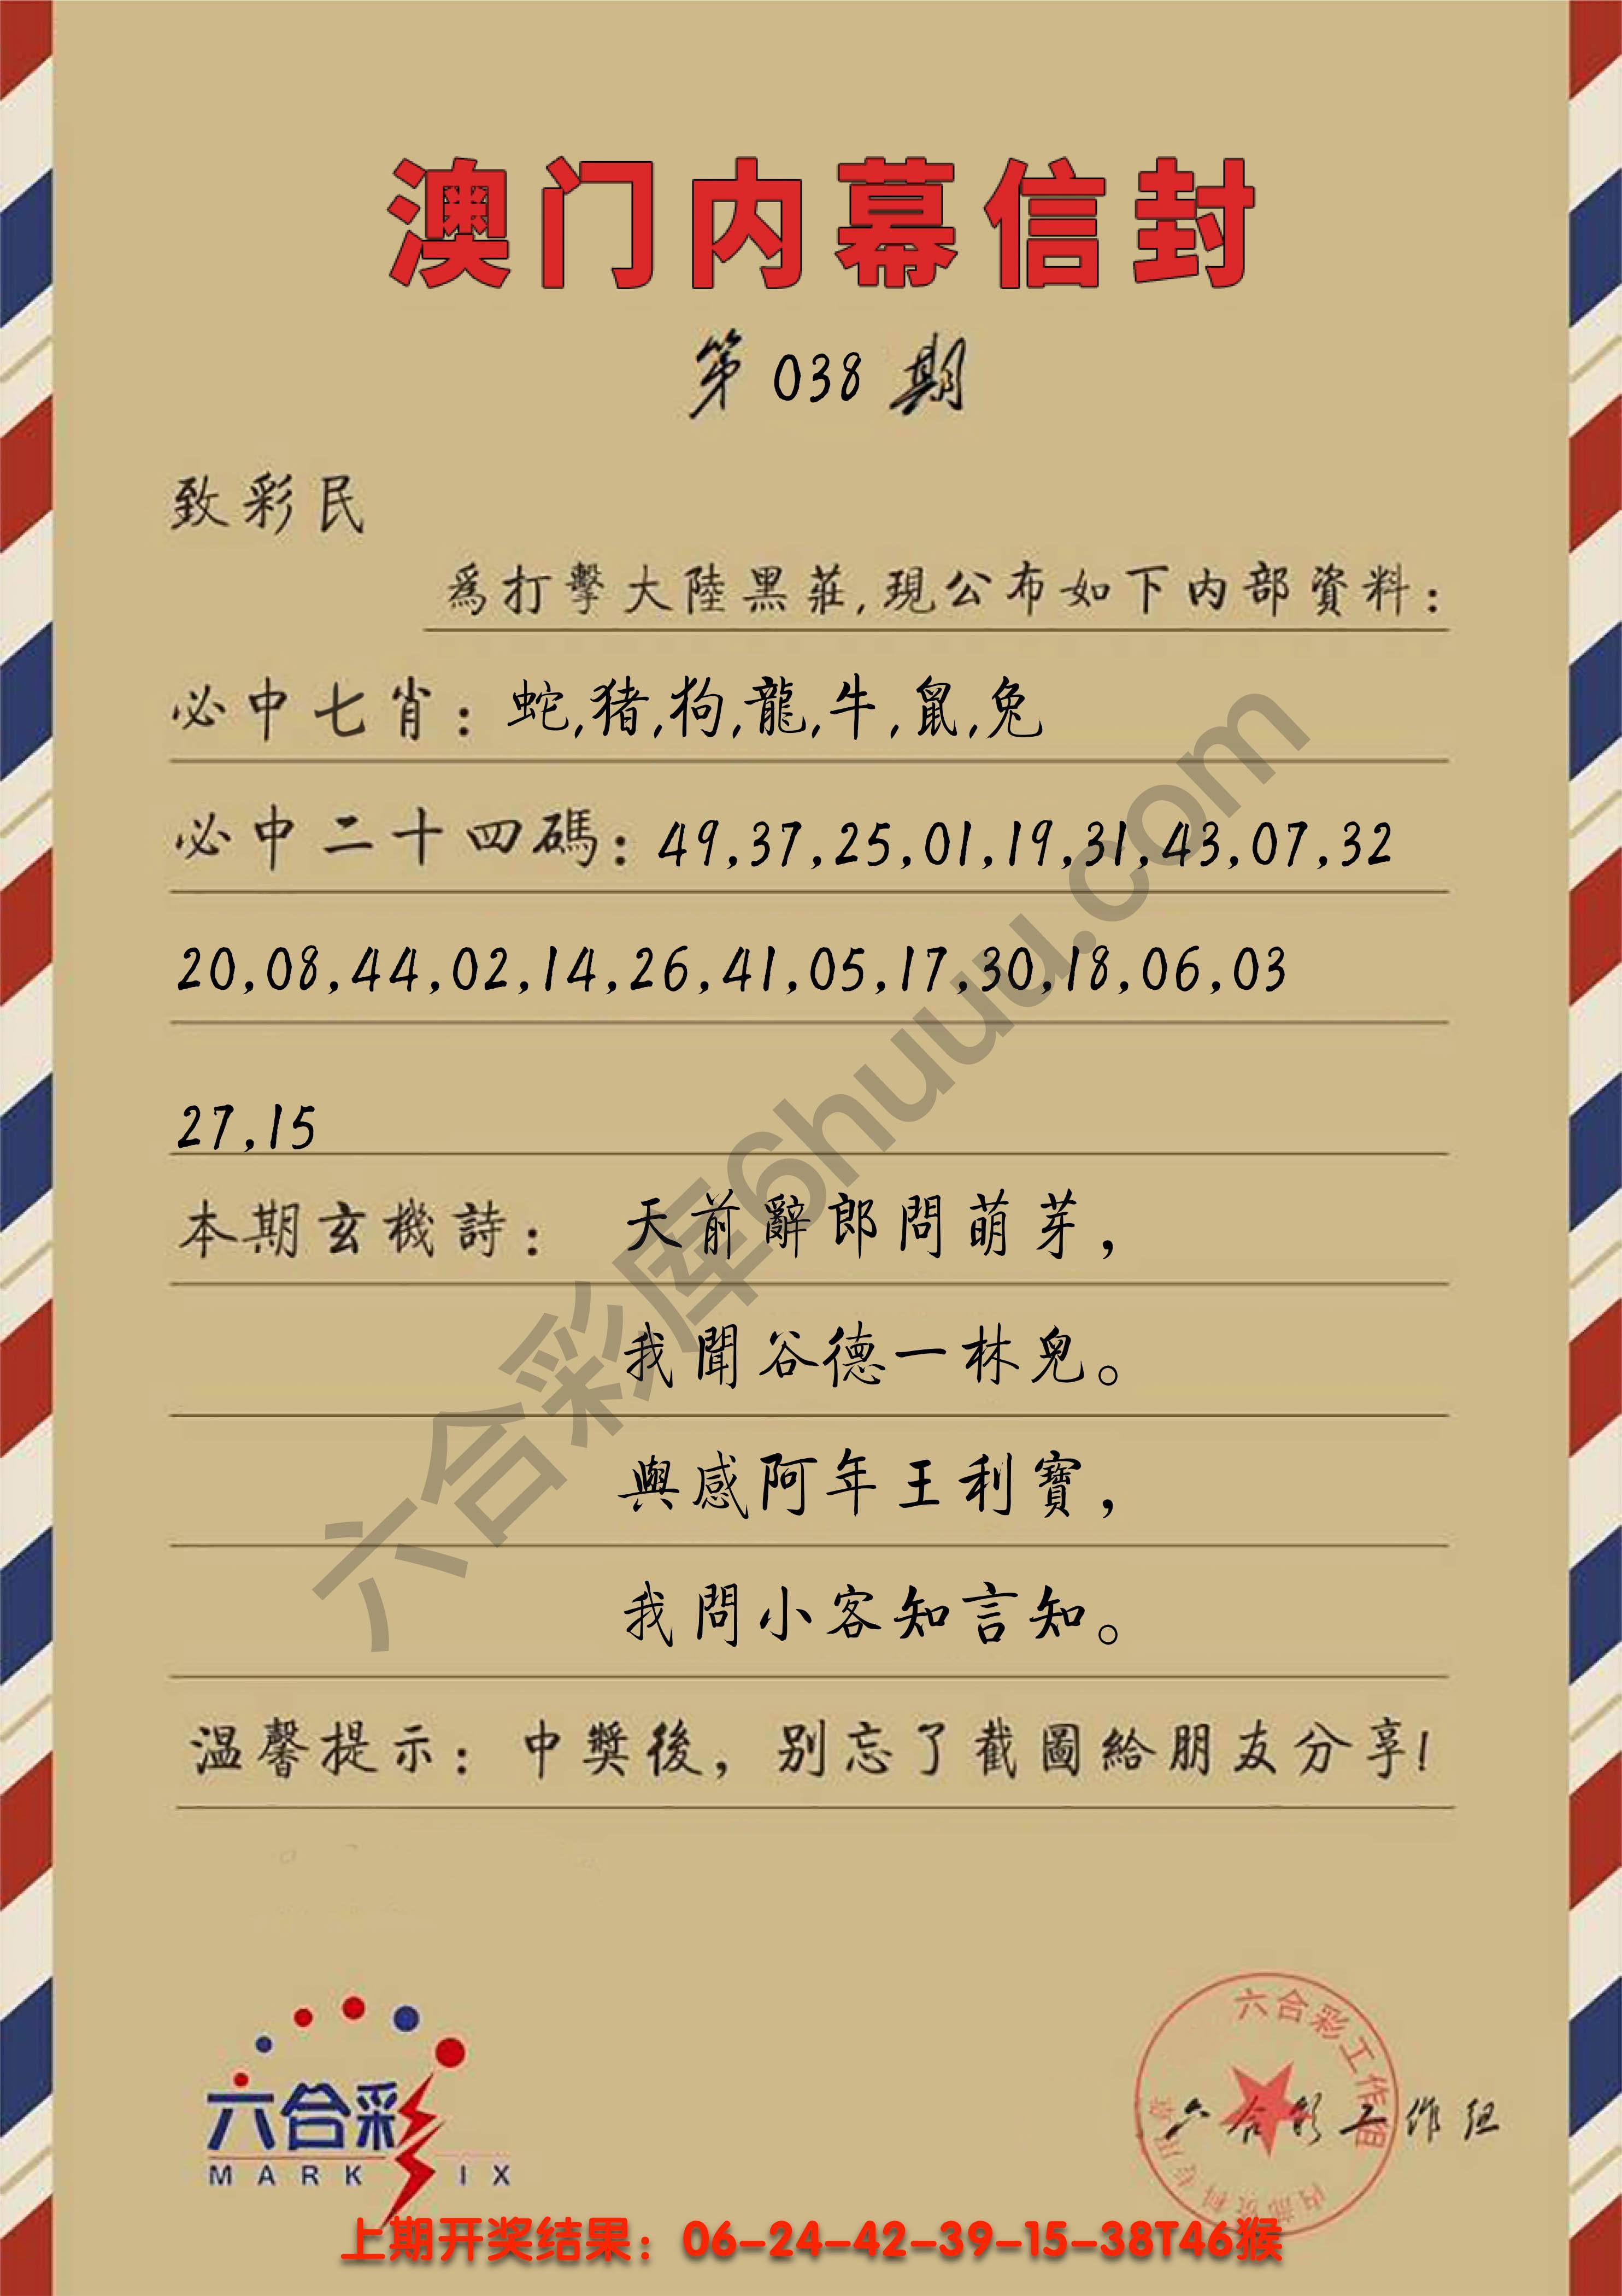 澳门内幕信封
第 038 期
致彩民
為打擊大陸黑莊,現公布如下内部資料:
必中七肖: 蛇,猪,狗,龍,牛,鼠,兔
必中二十四碼: 49,37,25,01,19,31,43,07,32
20,08,44,02,14,26,41,05,17,30,18,06,03
27,15
本期玄機詩: 天前辭郎問萌芽,
我聞谷德一林兒。
與感阿年王利寶,
我問小客知言知。
温馨提示: 中獎後, 别忘了截圖給朋友分享!
六合彩库6huuu.com
六合彩
MARK IX
六合彩工作组
六合彩工作组
上期开奖结果: 06-24-42-39-15-38T46猴